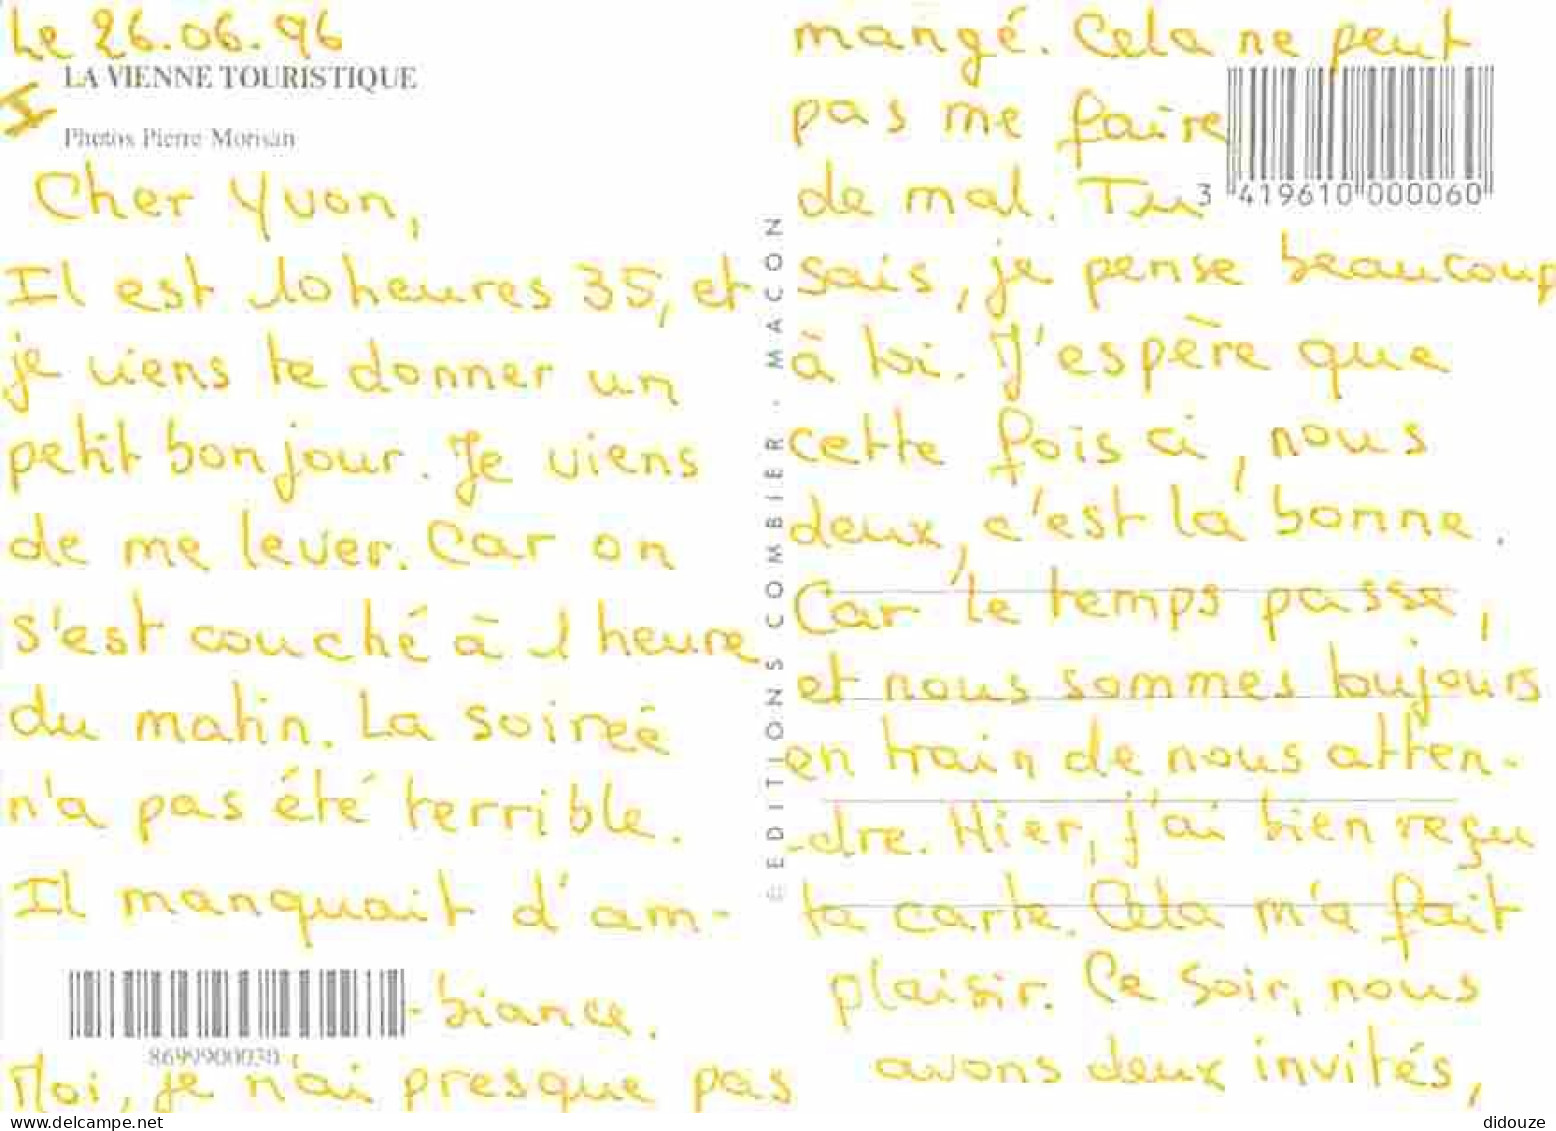 Le 26.06.96
LA VIENNE TOURISTIQUE
I
Photos Pierre Morisan
Cher Yvon,
Il est 10 heures 35, et
je viens te donner un
petit bonjour. Je viens
de me lever. Car on
s'est couché à 1 heure
du matin. La soireé
n'a pas été terrible.
Il manquait d'am-
-biance.
8699900030
Moi, je n'ai presque pas
EDITIONS COMBIER - MACON
mangé. Cela ne peut
pas me faire
de mal. Tu
3 419610 000060
sais, je pense beaucoup
à toi. J'espère que
cette fois ci, nous
deux, c'est la bonne.
Car le temps passe,
et nous sommes toujours
en train de nous atten-
-dre. Hier, j'ai bien reçu
ta carte. Cela m'a fait
plaisir. Ce soir, nous
avons deux invités,
delcampe.net
didouze